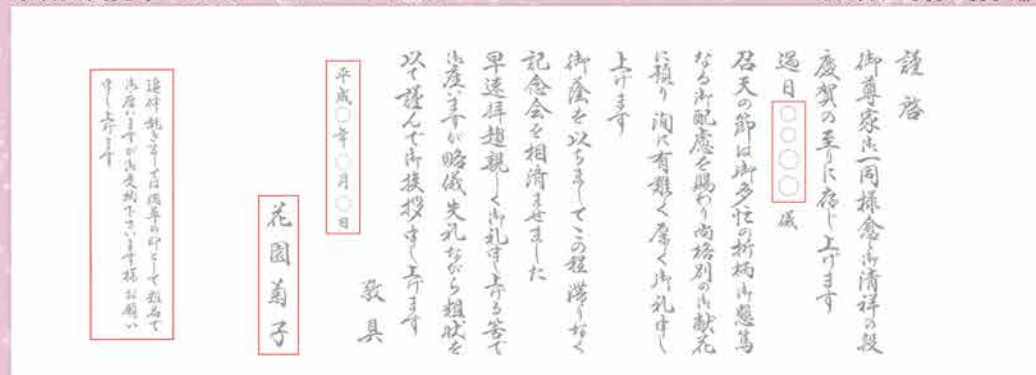 謹啓
御尊家御一同様愈々御清祥の段
慶賀の至りに存じ上げます
過日〇〇〇〇儀
召天の節は御多忙の折柄御懇篤
なる御配慮を賜わり尚格別の御献花
に預り洵に有難く厚く御礼申し
上げます
御蔭を以ちましてこの程滞りなく
記念会を相済ませました
早速拝趨親しく御礼申し上げる筈で
御座いますが略儀失礼ながら粗状を
以て謹んで御挨拶申し上げます
敬具
平成〇年〇月〇日
花園菊子
追伸就きましては偲草の印として粗品で
御座いますが御受納下さいます様お願い
申し上げます